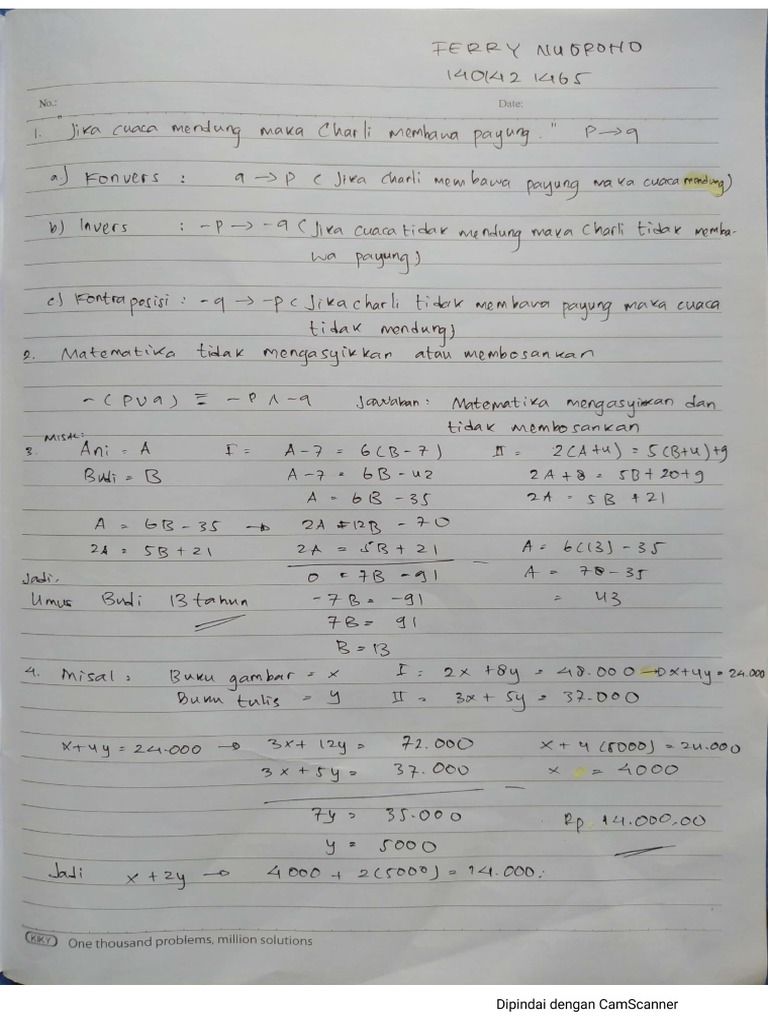 FERRY NUGROHO
140142 1465
No.:
Date:
1. "Jika cuaca mendung maka Charli membawa payung." P → q
a.) Konvers : q → P ( Jika charli membawa payung maka cuaca mendung)
b) Invers : -P → -q ( Jika cuaca tidak mendung maka Charli tidak memba-
wa payung)
c) Kontraposisi : -q → -P ( Jika charli tidak membawa payung maka cuaca
tidak mendung)
2. Matematika tidak mengasyikkan atau membosankan
~ (P ∨ q) ≡ -P ∧ -q Jawaban : Matematika mengasyikkan dan
tidak membosankan
MISAL:
3. Ani = A I = A - 7 = 6(B - 7) II = 2(A+4) = 5(B+4)+9
Budi = B A - 7 = 6B - 42 2A + 8 = 5B + 20 + 9
A = 6B - 35 2A = 5B + 21
A = 6B - 35 → 2A = 12B - 70
2A = 5B + 21 2A = 5B + 21 - A = 6(13) - 35
Jadi, 0 = 7B - 91 A = 78 - 35
Umur Budi 13 tahun -7B = -91 = 43
7B = 91
B = 13
4. Misal : Buku gambar = x I = 2x + 8y = 48.000 → x+4y = 24.000
Buku tulis = y II = 3x + 5y = 37.000
x + 4y = 24.000 → 3x + 12y = 72.000 x + 4 (5000) = 24.000
3x + 5y = 37.000 - x = 4000
7y = 35.000 Rp. 14.000,00
y = 5000
Jadi x + 2y → 4000 + 2(5000) = 14.000.
KIKY One thousand problems, million solutions
Dipindai dengan CamScanner